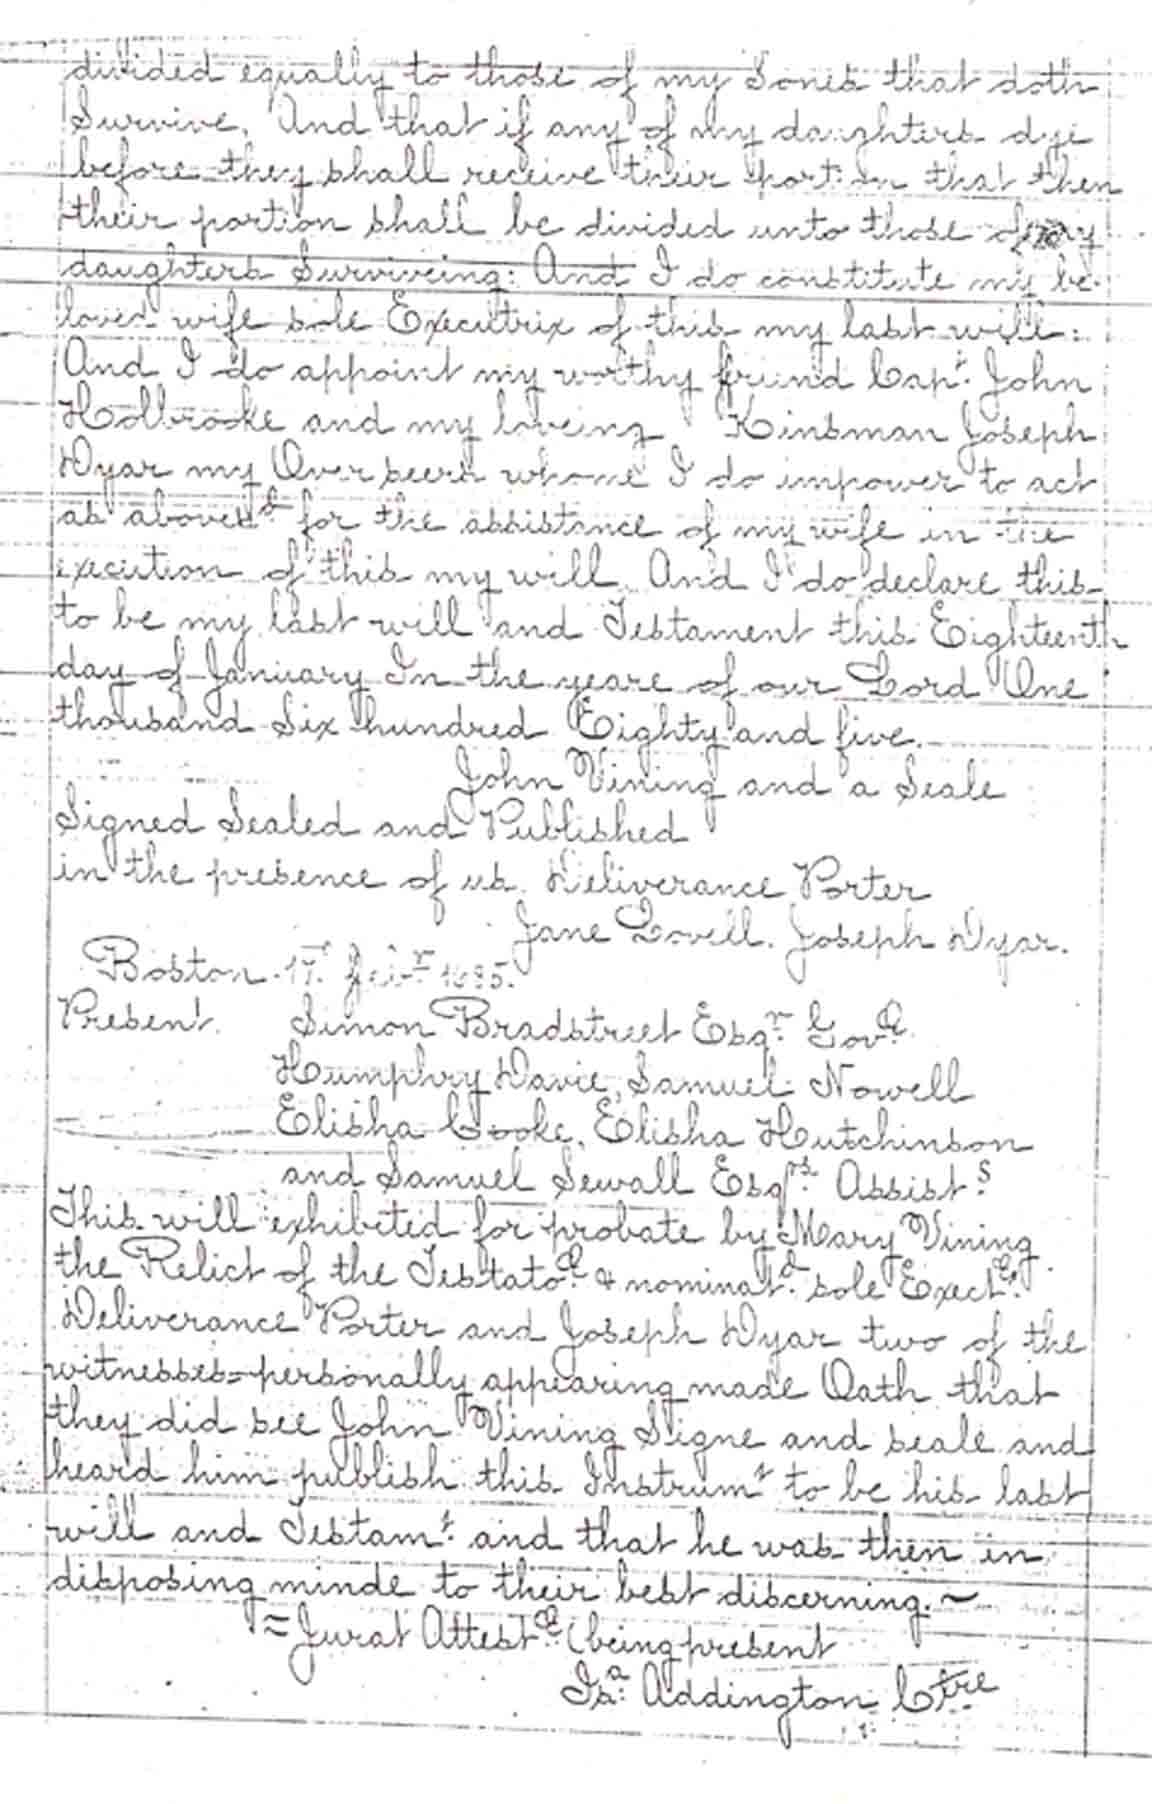 divided equally to those of my Sones that doth
Survive. And that if any of my daughters dye
before they shall receive their portion that then
their portion shall be divided unto those of my
daughters Surviveing: And I do constitute my be-
loved wife sole Executrix of this my last will:
And I do appoint my worthy friend Capt. John
Holbrooke and my loveing Kinsman Joseph
Dyar my Overseers whome I do impower to act
as abovesd for the assistance of my wife in the
execution of this my will. And I do declare this
to be my last will and Testament this Eighteenth
day of January In the yeare of our Lord One
thousand Six hundred Eighty and five.
John Vining and a Seale
Signed Sealed and Published
in the presence of us. Deliverance Porter
Jane Lovell. Joseph Dyar.
Boston 1685.
Present. Simon Bradstreet Esqr. Govr.
Humphry Davie, Samuel Nowell
Elisha Cooke, Elisha Hutchinson
and Samuel Sewall Esqrs. Assists.
This will exhibited for probate by Mary Vining
the Relict of the Testator. & nominatd. sole Exectr.
Deliverance Porter and Joseph Dyar two of the
witnesses=personally appearing made Oath that
they did see John Vining Signe and seale and
heard him publish this Instrumt to be his last
will and Testamt. and that he was then in
disposing minde to their best discerning. ~
= Jurat Attestr. (being present
Isa: Addington Ctre